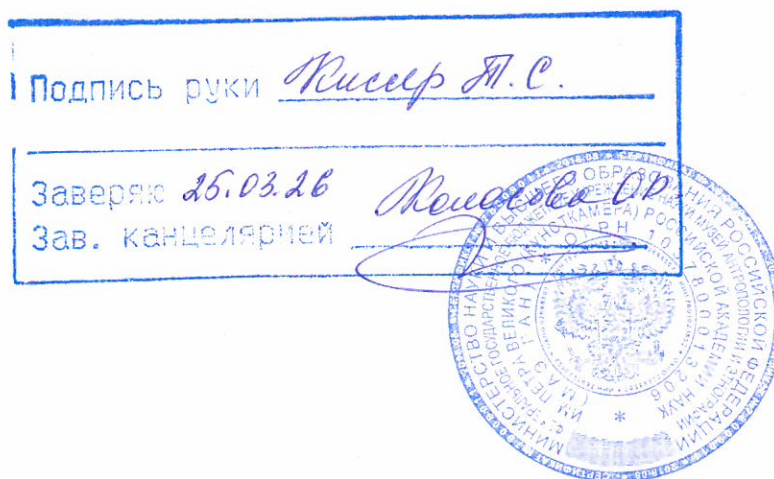 Подпись руки Кисер Т.С.
Заверяю 25.03.26 Колосова О.Р.
Зав. канцелярией
МИНИСТЕРСТВО НАУКИ И ВЫСШЕГО ОБРАЗОВАНИЯ РОССИЙСКОЙ ФЕДЕРАЦИИ
МУЗЕЙ АНТРОПОЛОГИИ И ЭТНОГРАФИИ
ИМ. ПЕТРА ВЕЛИКОГО (КУНСТКАМЕРА) РОССИЙСКОЙ АКАДЕМИИ НАУК
(МАЭ РАН)